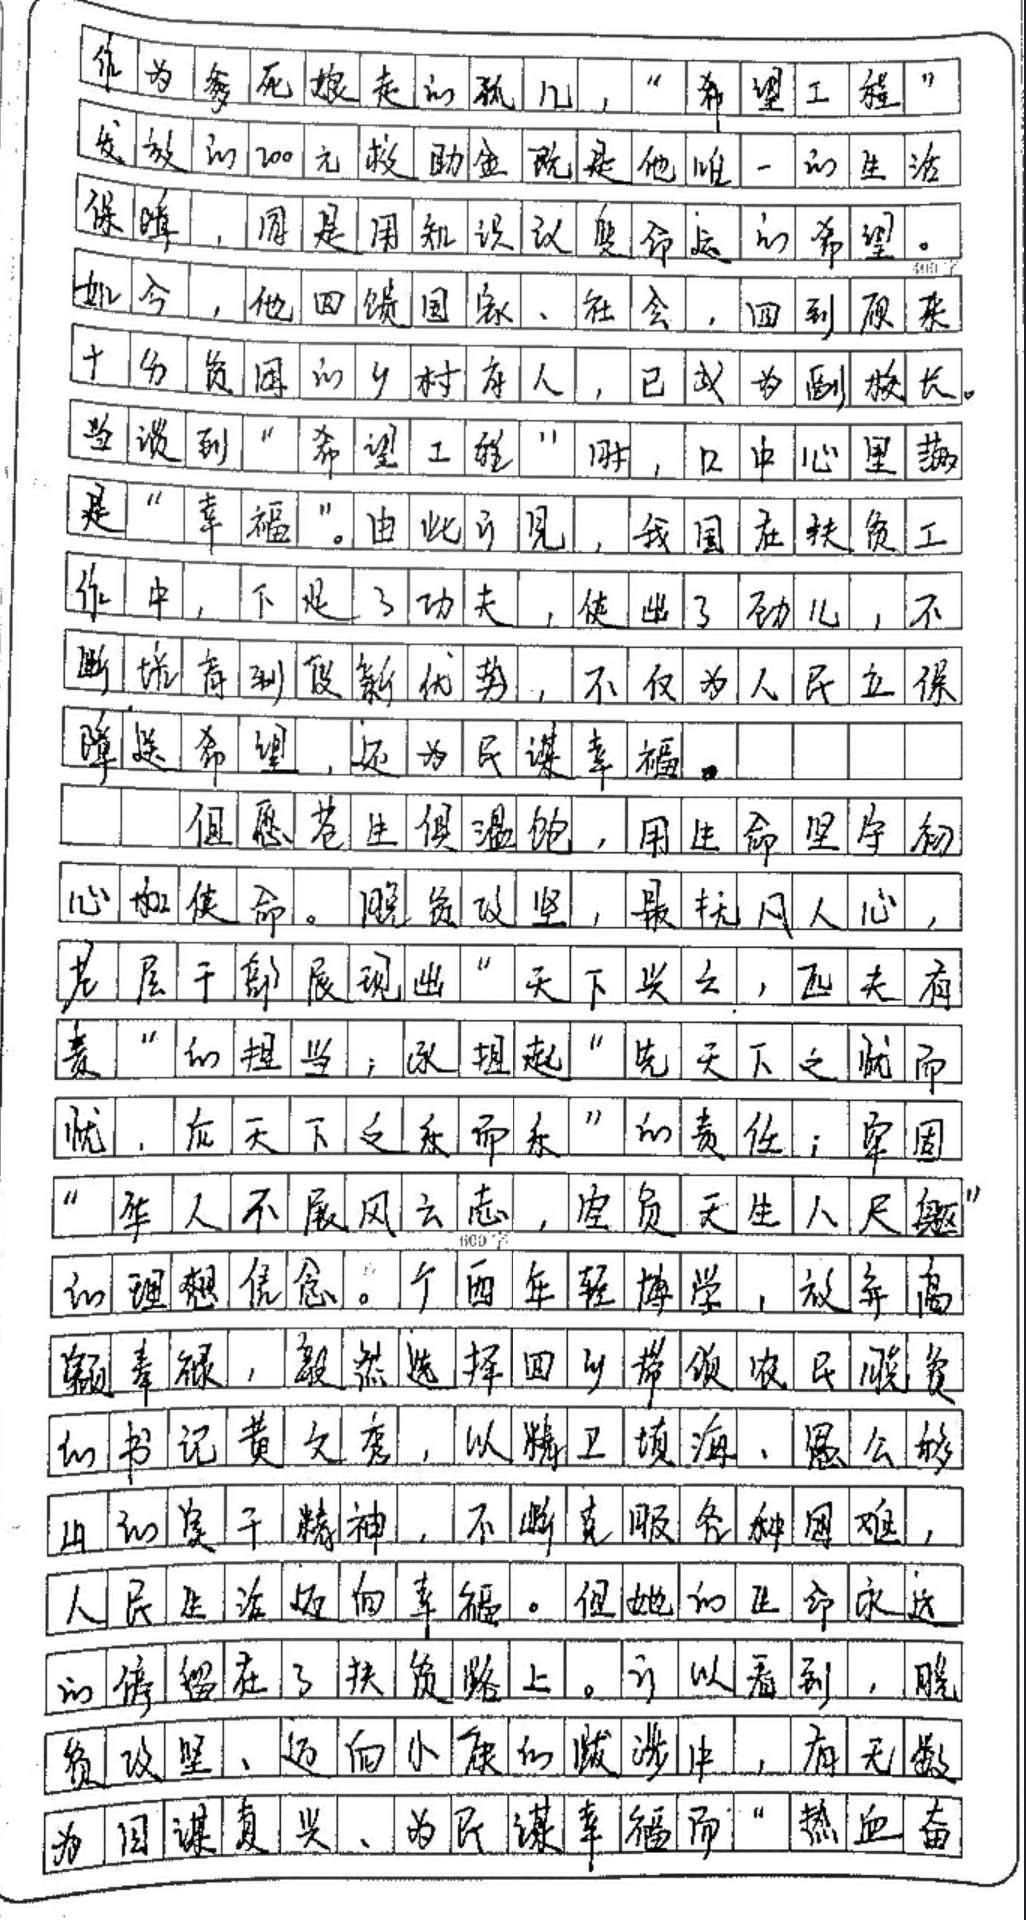 作为爹死娘走的孤儿，“希望工程”
发放的200元救助金既是他唯一的生活
保障，同是用知识改变命运的希望。
400字
如今，他回馈国家、社会，回到原来
十分贫困的乡村育人，已成为副校长。
当谈到“希望工程”时，口中心里满
是“幸福”。由此可见，我国在扶贫工
作中，下足了功夫，使出了劲儿，不
断培育到段新优势，不仅为人民立保
障送希望，还为民谋幸福。
但愿苍生俱温饱，用生命坚守初
心和使命。脱贫攻坚，最抚凡人心，
基层干部展现出“天下兴亡，匹夫有
责”的担当；承担起“先天下之忧而
忧，后天下之乐而乐”的责任；牢固
“年人不展风云志，空负天生八尺躯”
600字
的理想信念。广西年轻博学，放弃高
额奉禄，毅然选择回乡带领农民脱贫
的书记黄文秀，以精卫填海、愚公移
山的实干精神，不断克服各种困难，
人民生活迈向幸福。但她的生命永远
的停留在了扶贫路上。可以看到，脱
贫攻坚、迈向小康的跋涉中，有无数
为国谋复兴、为民谋幸福而“热血奋